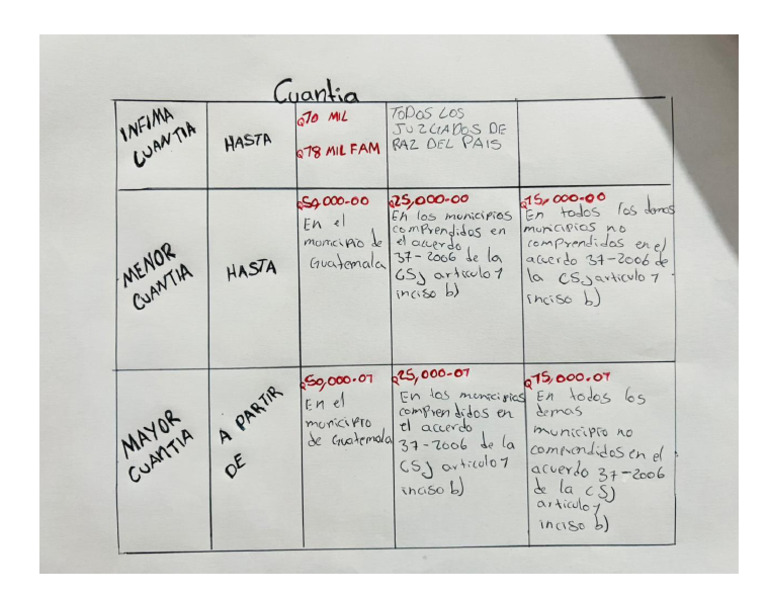 Cuantia
INFIMA
CUANTIA
HASTA
Q70 MIL
Q78 MIL FAM
TODOS LOS
JUZGADOS DE
RAZ DEL PAIS
MENOR
CUANTIA
HASTA
Q50,000-00
En el
municipio de
Guatemala
Q25,000-00
En los municipios
comprendidos en
el acuerdo
37-2006 de la
CSJ articulo 1
inciso b)
Q15,000-00
En todos los demas
municipios no
comprendidos en el
acuerdo 37-2006 de
la CSJ articulo 1
inciso b)
MAYOR
CUANTIA
A PARTIR
DE
Q50,000.01
En el
municipio
de Guatemala
Q25,000-01
En los municipios
comprendidos en
el acuerdo
37-2006 de la
CSJ articulo 1
inciso b)
Q15,000.01
En todos los
demas
municipio no
comprendidos en el
acuerdo 37-2006
de la CSJ
articulo 1
inciso b)